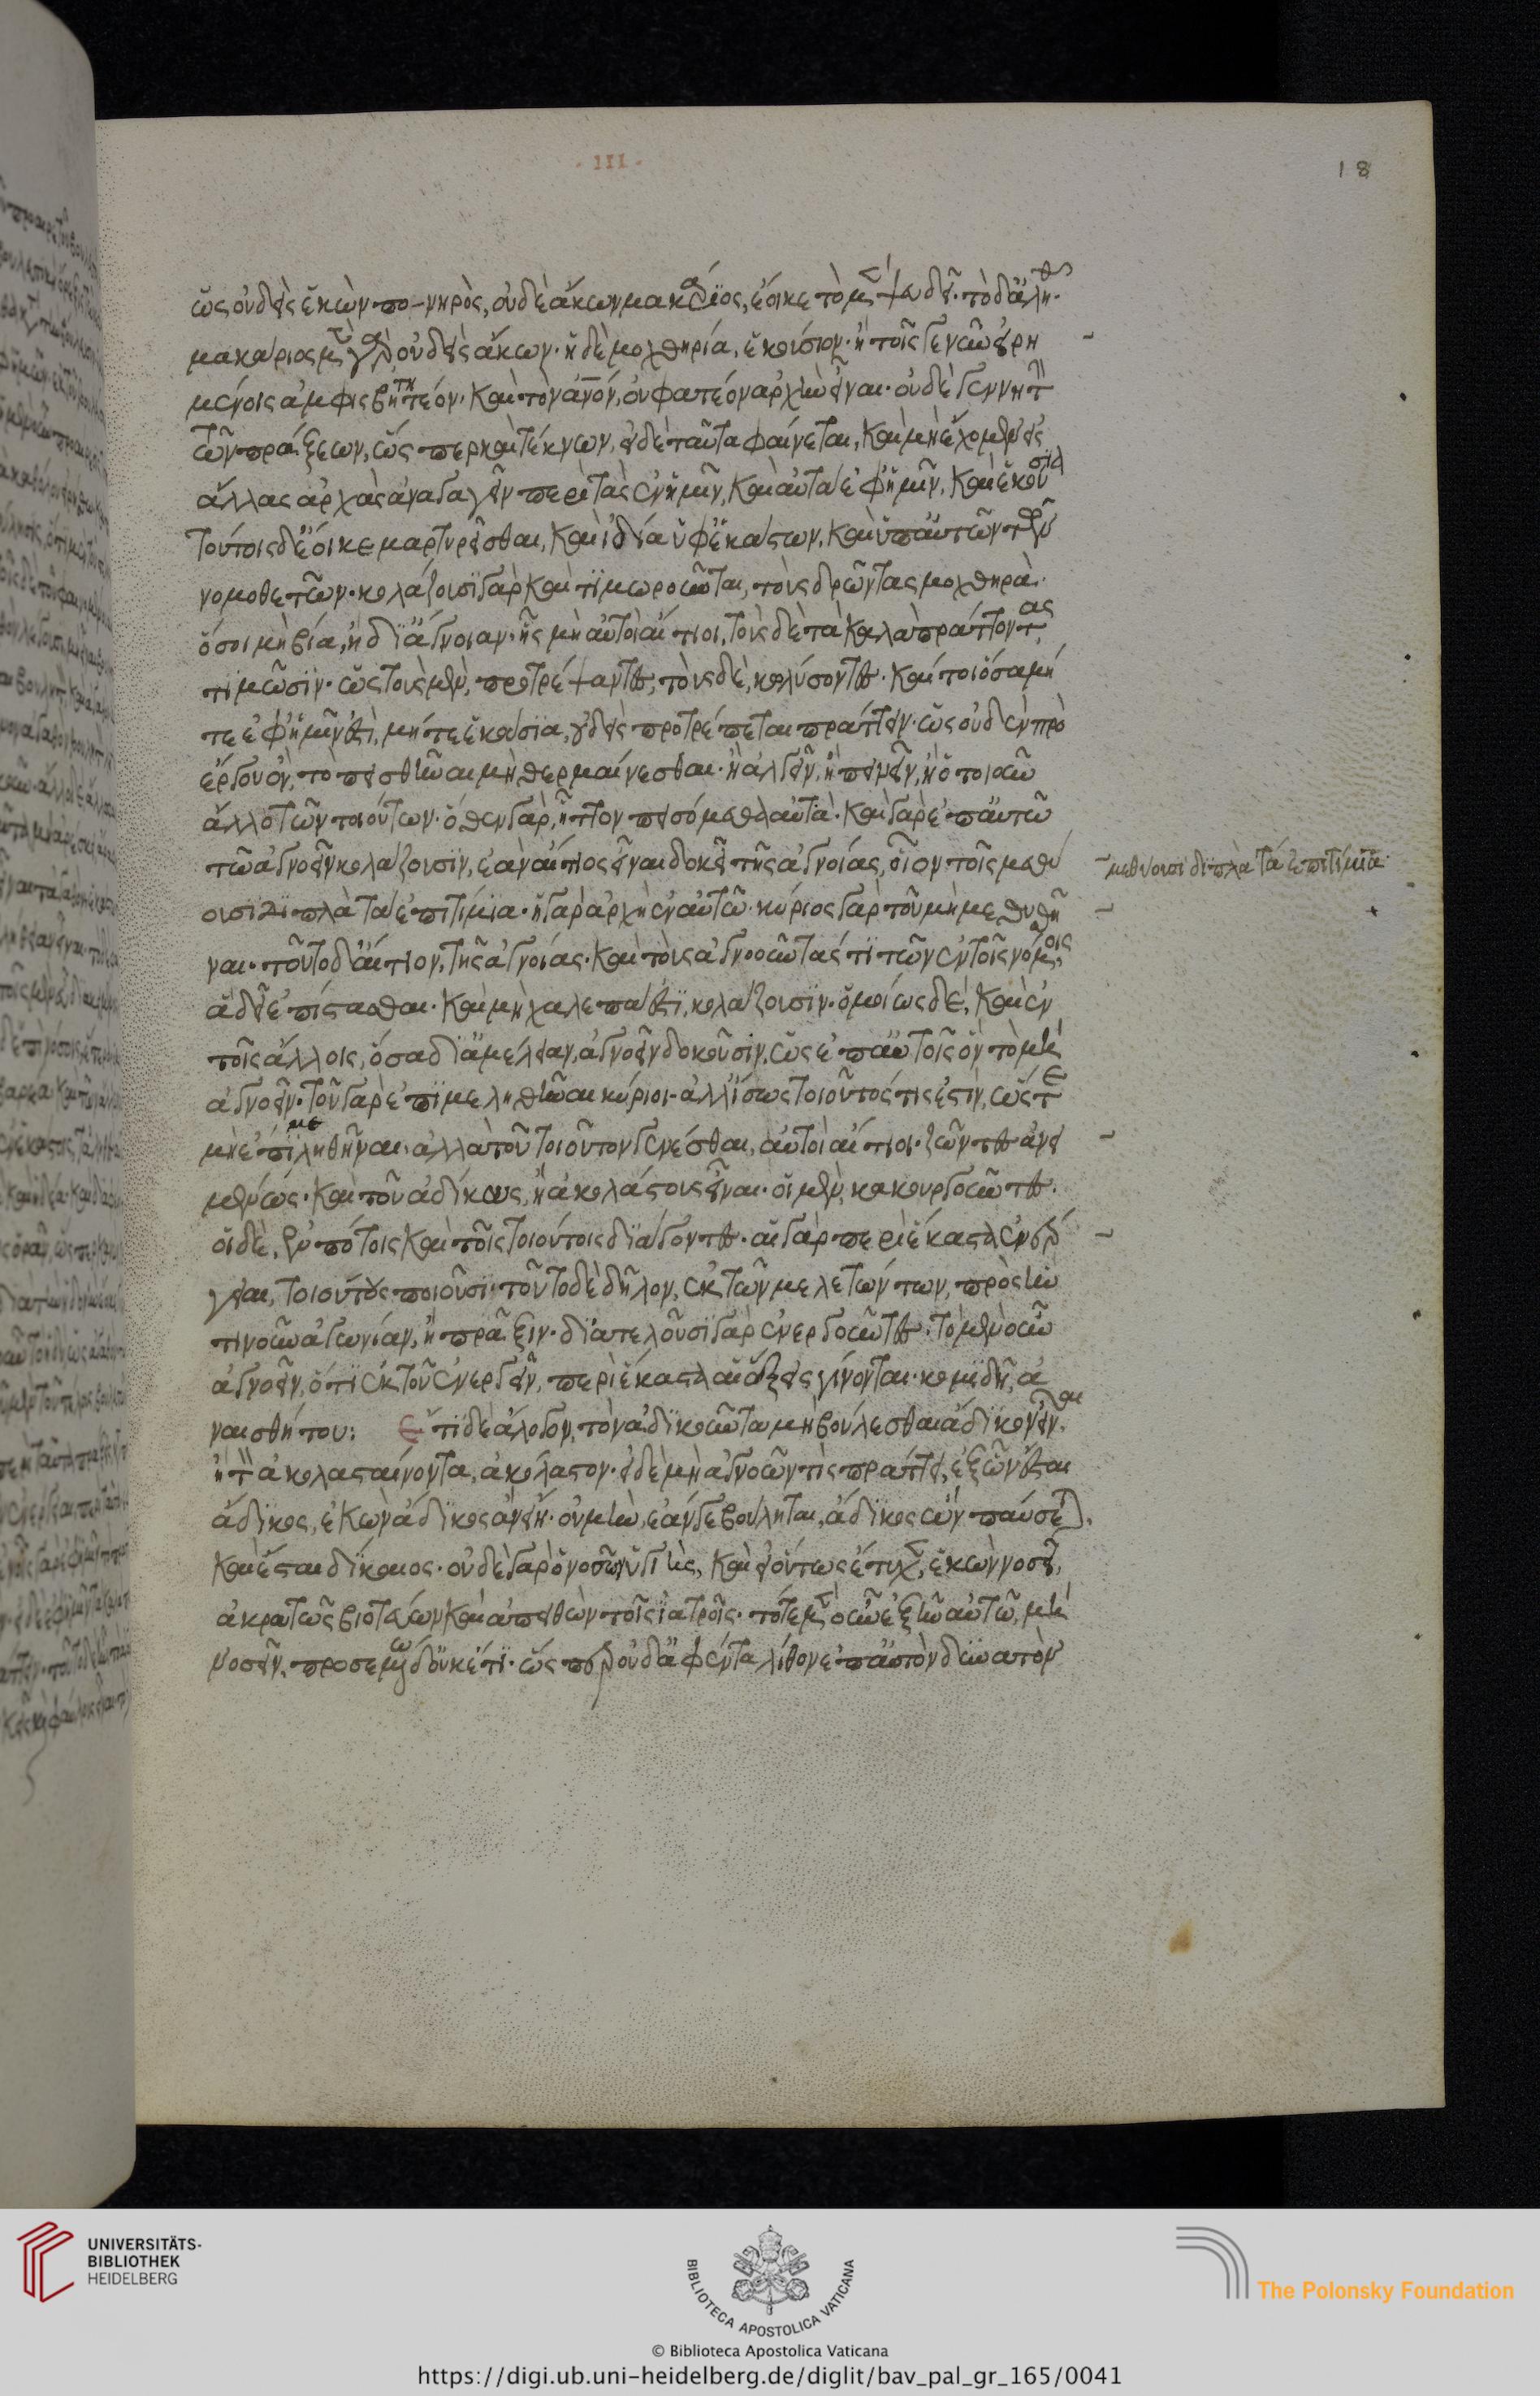 · III ·
18
ὡς οὐδεὶς ἑκὼν πονηρὸς, οὐδὲ ἄκων μακάριος, ἔοικε τὸ μὲν ψευδεῖ· τὸ δ' ἀληθεῖ·
μακάριος μὲν γὰρ οὐδεὶς ἄκων· ἡ δὲ μοχθηρία, ἑκούσιον· ἢ τοῖς γε νῦν εἰρη
μένοις ἀμφισβητητέον· καὶ τὸν ἄνον, οὐ φατέον ἀρχὴν εἶναι· οὐδὲ γεννητὴν
τῶν πράξεων, ὥσπερ καὶ τέκνων, εἰ δὲ ταῦτα φαίνεται, καὶ μὴ ἔχομεν εἰς
ἄλλας ἀρχὰς ἀναγαγεῖν περὶ τὰς ἐν ἡμῖν, καὶ αὐτὰ ἐφ' ἡμῖν, καὶ ἑκούσια
τούτοις δ' ἔοικε μαρτυρεῖσθαι, καὶ ἰδία ὑφ' ἑκάστων, καὶ ὑπ' αὐτῶν τῶν
νομοθετῶν· κολάζουσι γὰρ καὶ τιμωροῦνται, τοὺς δρῶντας μοχθηρὰ·
ὅσοι μὴ βία, ἢ δι' ἄγνοιαν· ἧς μὴ αὐτοὶ αἴτιοι, τοὺς δὲ τὰ καλὰ πράττοντας
τιμῶσιν· ὡς τοὺς μὲν, προτρέψαντες, τοὺς δὲ, κολύσοντες· καί τοι ὅσα μή
τε ἐφ' ἡμῖν ἐστὶ, μήτε ἑκούσια, οὐδεὶς προτρέπεται πράττειν· ὡς οὐδὲν πρὸ
ἔργου ὂν, τὸ πεισθῆναι μὴ θερμαίνεσθαι· ἢ ἀλγεῖν, ἢ πεινεῖν, ἢ ὁτιοῦν
ἄλλο τῶν τοιούτων· ὅθεν γὰρ, ἧττον πεισόμεθα αὐτὰ· καὶ γὰρ ἐπ' αὐτῶ
τῶ ἀγνοεῖν κολάζουσιν, ἐὰν αἴτιος εἶναι δοκῆ τῆς ἀγνοίας, οἷον τοῖς μεθύ
ουσι διπλὰ τὰ ἐπιτίμια· ἡ γὰρ ἀρχὴ ἐν αὐτῶ· κύριος γὰρ τοῦ μὴ μεθυσθῆ
ναι· τοῦτο δ' αἴτιον, τῆς ἀγνοίας· καὶ τοὺς ἀγνοοῦντάς τι τῶν ἐν τοῖς νόμοις,
ἃ δεῖ ἐπίστασθαι· καὶ μὴ χαλεπά ἐστι, κολάζουσιν· ὁμοίως δὲ, καὶ ἐν
τοῖς ἄλλοις, ὅσα δι' ἀμέλειαν, ἀγνοεῖν δοκοῦσιν, ὡς ἐπ' αὐτοῖς ὂν τὸ μὴ
ἀγνοεῖν· τοῦ γὰρ ἐπιμεληθῆναι κύριοι· ἀλλ' ἴσως τοιοῦτός τις ἐστὶν, ὥστε
μὴ ἐπιμεληθῆναι· ἀλλὰ τοῦ τοιοῦτον γενέσθαι, αὐτοὶ αἴτιοι· ζῶντες ἀνει
μένως· καὶ τοῦ ἀδίκους, ἢ ἀκολάστους εἶναι· οἱ μὲν, κακουργοῦντες·
οἱ δὲ, ἐν πότοις καὶ τοῖς τοιούτοις διάγοντες· αἱ γὰρ περὶ ἕκαστα ἐνέρ
γειαι, τοιούτους ποιοῦσι· τοῦτο δὲ δῆλον, ἐκ τῶν μελετώντων, πρὸς ἣν
τινοῦν ἀγωνίαν, ἢ πρᾶξιν· διατελοῦσι γὰρ ἐνεργοῦντες· τὸ μὲν οὖν
ἀγνοεῖν, ὅτι ἐκ τοῦ ἐνεργεῖν, περὶ ἕκαστα αἱ ἕξεις γίνονται· κομιδῆ, ἀ
ναισθήτου: Ἔτι δὲ ἄλογον, τὸν ἀδικοῦντα μὴ βούλεσθαι ἄδικον εἶναι·
ἢ τὸν ἀκολασταίνοντα, ἀκόλαστον· εἰ δὲ μὴ ἀγνοῶν τὶς πράττει, ἐξ ὧν ἔσται
ἄδικος, ἑκὼν ἄδικος ἂν εἴη· οὐ μὴν, ἐάν γε βούληται, ἄδικος ὢν παύσεται·
καὶ ἔσται δίκαιος· οὐδὲ γὰρ ὁ νοσῶν ὑγιὴς, καὶ εἰ οὕτως ἔτυχεν, ἑκὼν νοσεῖ,
ἀκρατῶς βιοτεύων καὶ ἀπειθῶν τοῖς ἰατροῖς· τότε μὲν οὖν ἐξῆν αὐτῶ, μὴ
νοσεῖν, προσεμένω δ' οὐκέτι· ὥσπερ οὐδ' ἀφέντα λίθον ἔτ' αὐτὸν δυνατὸν
μεθύουσι διπλὰ τὰ ἐπιτίμια·
UNIVERSITÄTS-
BIBLIOTHEK
HEIDELBERG
BIBLIOTECA APOSTOLICA VATICANA
The Polonsky Foundation
© Biblioteca Apostolica Vaticana
https://digi.ub.uni-heidelberg.de/diglit/bav_pal_gr_165/0041